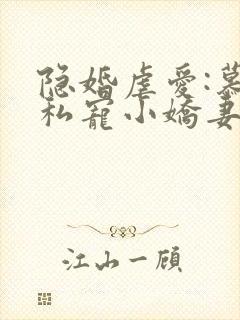 隐婚虐爱:慕
私宠小娇妻
江山一顾